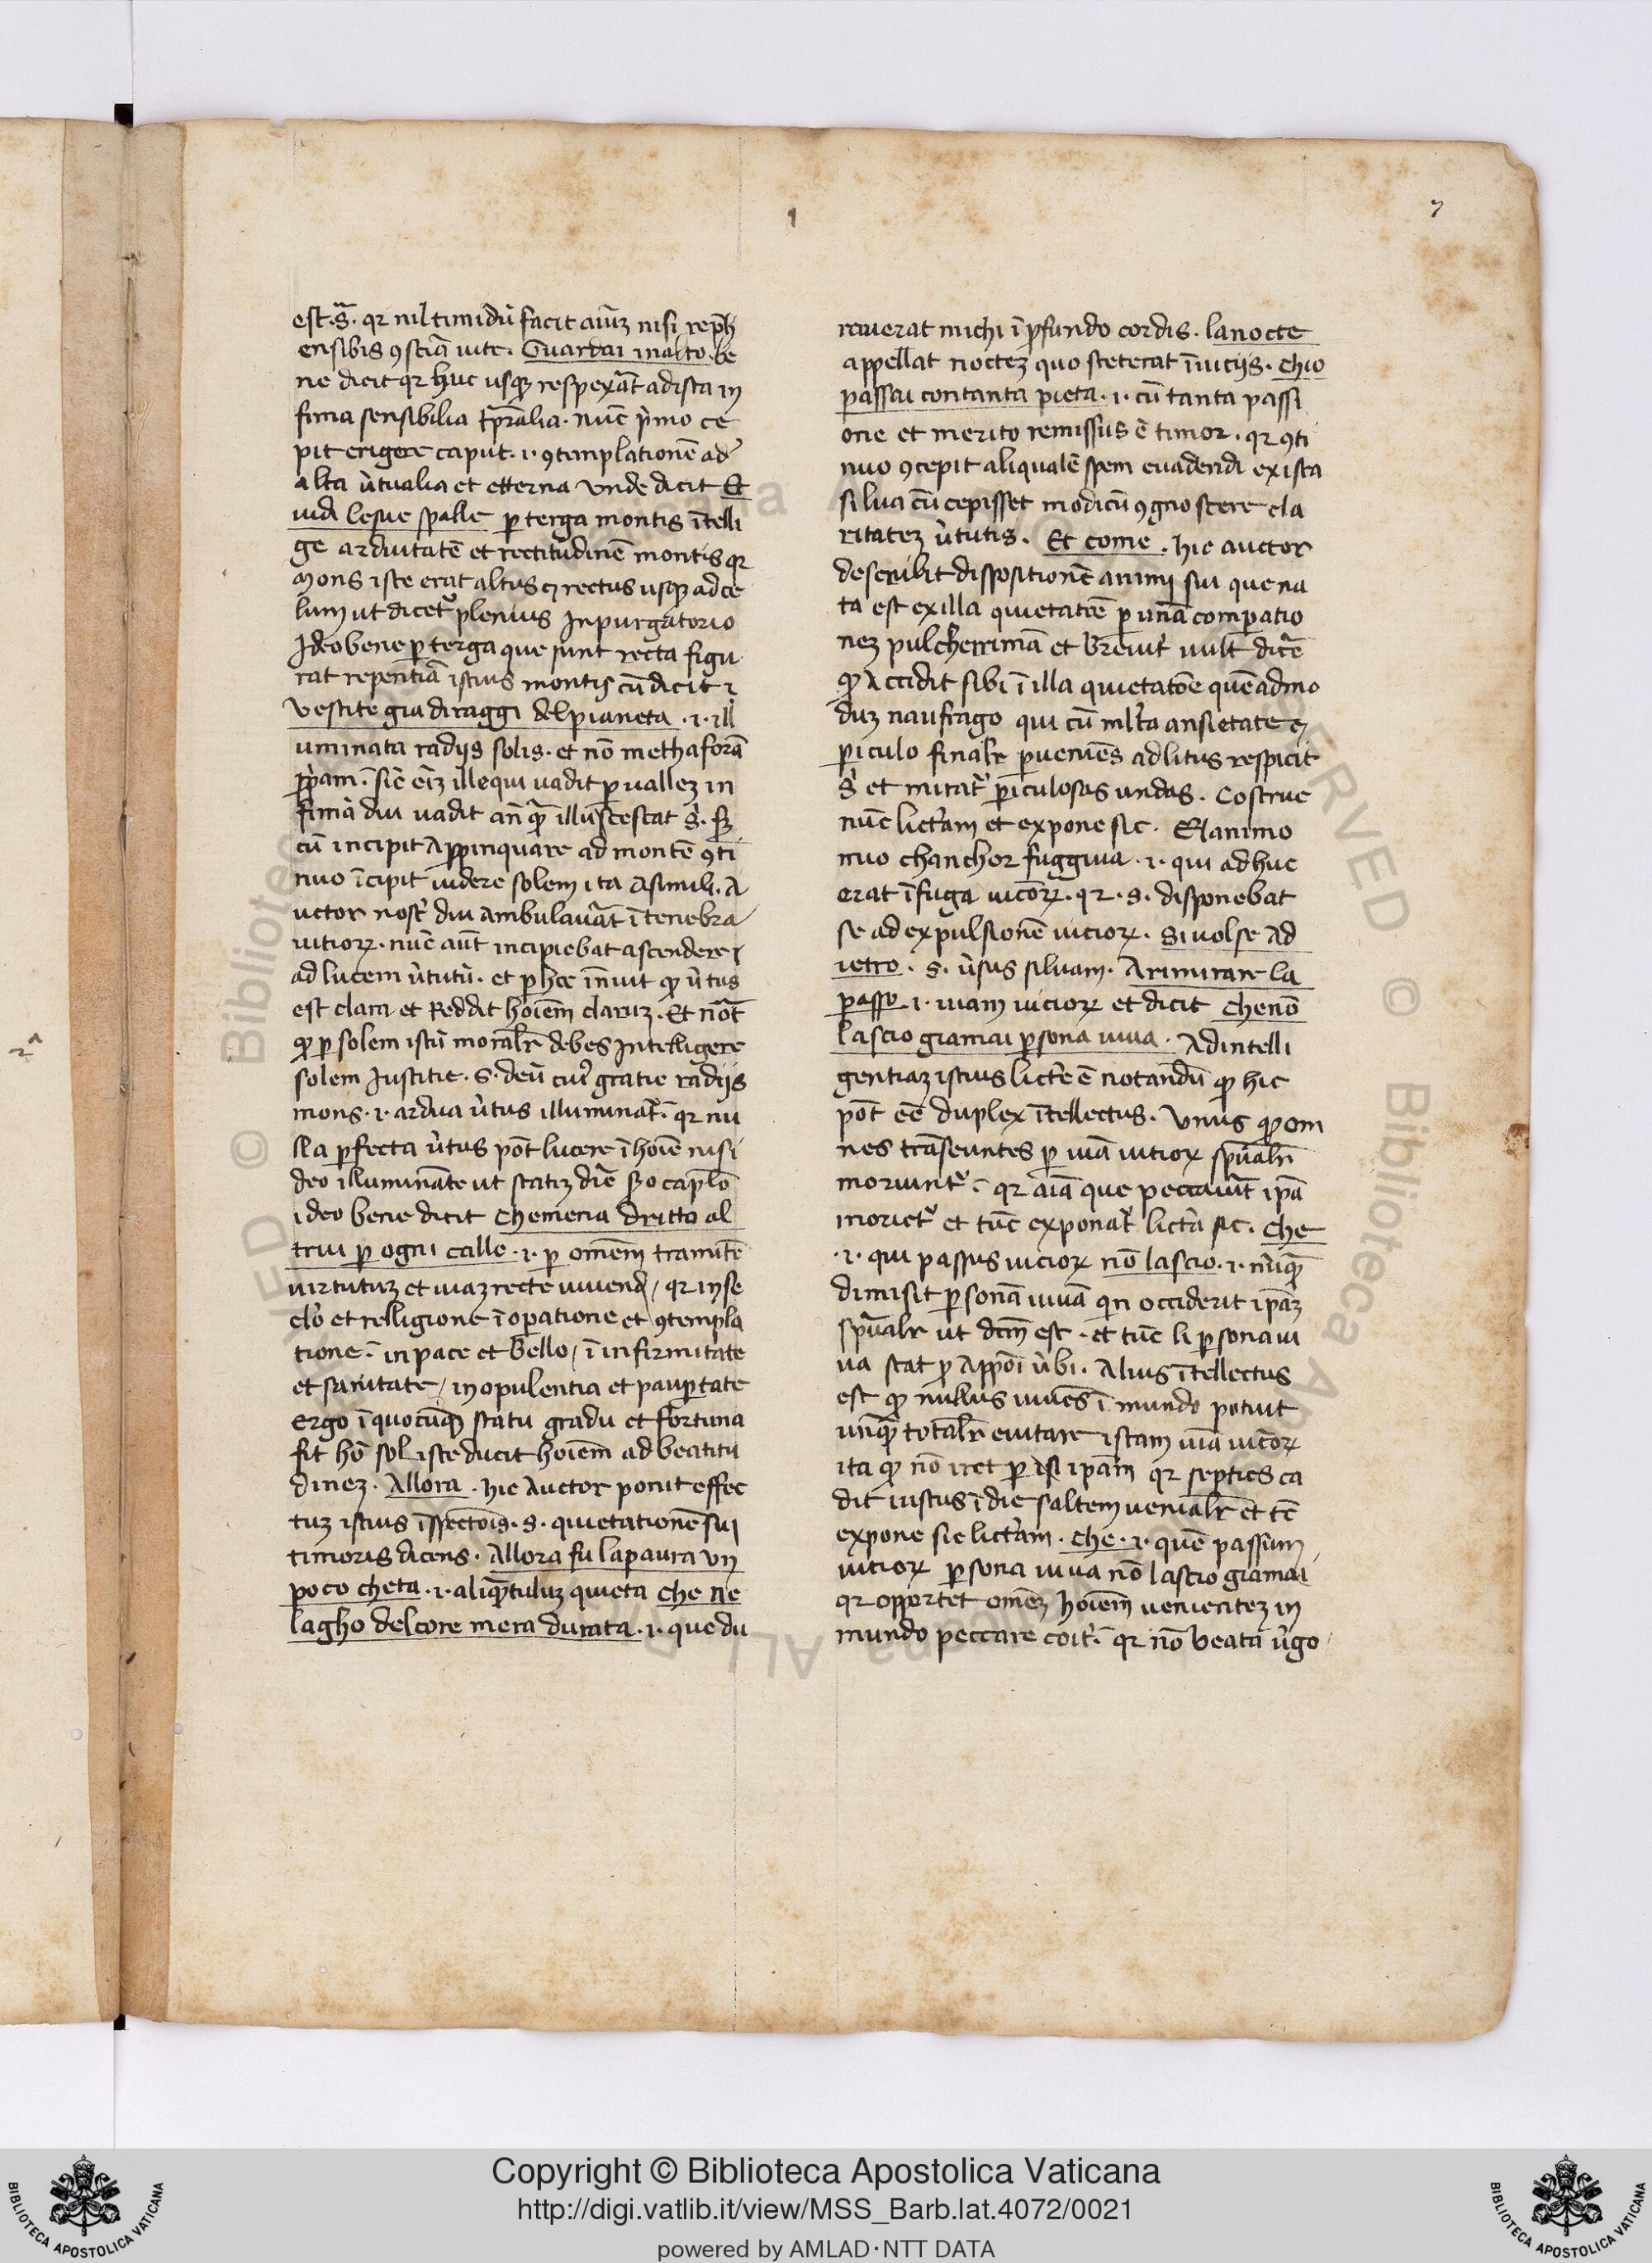 1
7
est .s̄. qr nil timidū facit aīuz nisi rep̄h
ensibis ꝯsciā uite . Guardai inalto . be
ne dicit qr huc usqȝ respexāt ad ista in
fima sensibilia tp̄ralia . nūc p̍mo ce
pit erigere caput . i . ꝯtemplationē ad
alta u̍tualia et etterna Vnde dicit Et
uidi lesue spalle p̱ terga montis ītelli
ge arduitatē et rectitudinē montis qr
mons iste erat altus ⁊ rectus usqȝ ad ce
lum ut dicet᷑ plenius In purgatorio
Ideo bene p̱ terga que sunt recta figu
rat repentiā istius montis cū dicit i
Vestite gia di raggi del pianeta . i . ill
uminata radijs solis . et nō methaforā
pp̱am . sic eīz ille qui uadit p̱ vallez in
fimā diu uadit an̄ qȝ illucescat s̍. sȝ
cū incipit Appinquare ad montē ꝯti
nuo īcipit uidere solem ita Asimili . A
uctor nost̍ diu ambulauāt ī tenebra
uitioꝝ . nūc aūt incipiebat ascendere
ad lucem u̍tutū . et p̱ hoc īnuit ꝙ u̍tus
est clara et Reddit hoīem claruz . Et nōt
ꝙ p̱ solem istū moralr̄ debes Intelligere
solem Iustitie . s . deū cui᷒ gratie radijs
mons . i . ardua u̍tus illuminat᷑ . qr nu
lla p̱fecta u̍tus pōt lucere ī hoīe nisi
deo illumināte ut statiȝ dīe sȝo caplō
ideo bene dicit Che mena dritto al
trui p̱ ogni calle . i . p̱ omēm tramitē
uirtutuz et uiaz recte uiuend / qr in se
clo et relligione ī op̱atione et ꝯtempla
tione . in pace et bello / ī infirmitate
et sanitate / in opulentia et paup̱tate
ergo ī quocūqȝ statu gradu et fortuna
sit hō sol iste ducit hoīem ad beatitu
dinez . Allora . hic Auctor ponit effec
tuz istius īspectoīs . s . quietationē sui
timoris dicens . Allora fu lapaura un
poco cheta . i . aliqȝtuluz quieta che ne
lagho del core mera durata . i . que du
rauerat michi ī p̱fundo cordis . la nocte
appellat noctez quo steterat ī uicijs . Chio
passai contanta pieta . i . cū tanta passi
one et merito remissus ē timor . qr ꝯti
nuo ꝯcepit aliqualē spem euadendi ex ista
silua cū cepisset modicū ꝯgnoscere cla
ritatez u̍tutis . Et come . hic auctor
describit dispositionē animi sui que na
ta est ex illa quietatōe p̱ unā comp̱atio
nez pulcherrimā et breuit̍ uult dicē
ꝙ Accidit sibi ī illa quietatōe quēadmo
duz naufrago qui cū mlta ansietate ⁊
p̱iculo finalr̄ p̱uenīes ad litus respicit
s̍ et mirat᷑ p̱iculosas undas . Costrue
nūc lict̍am et expone sic . El animo
mio chanchor fuggiua . i . qui adhuc
erat ī fuga uicōrꝝ . qr . s . disponebat
se ad expulsionē uicioꝝ . Si uolse ad
ietro . s . u̍sus siluam . A rimirare la
passo . i . uiam uicioꝝ et dicit Che nō
lascio giamai p̱sona uiua . Ad intelli
gentiaz istius lict̍e ē notandū ꝙ hic
pōt eē duplex ītellectus . Vnus ꝙ om
nes trāseuntes p̱ uiā uitioꝝ spūalr̄
moriunt᷑ . qr aīa que peccauīt ipā
moriet᷑ et tūc exponat᷑ lict̍a sic . Che
. i . qui passus uicioꝝ nō lascio . i . nūqȝ
dimisit p̱sonā uiuā qn occiderit ipāz
spūalr̄ ut dcm̄ est . et tūc li p̱sona ui
ua stat p̱ Appoī u̍bi . Alius ītellectus
est ꝙ nullus uiuēs ī mundo potuit
unqȝ totalr̄ euitare istam uiā uicōrꝝ
ita ꝙ nō iret p̱ ipam qr septies ca
dit iustus ī die saltem uenialr̄ et tc̄
expone sic lict̍am . Che . i . quē passum
uicioꝝ p̱sona uiua nō lascio giamai
qr opportet omēz hoīem uenientez in
mundo peccare cōit̍ . qr nō beata u̍go
Copyright © Biblioteca Apostolica Vaticana
http://digi.vatlib.it/view/MSS_Barb.lat.4072/0021
powered by AMLAD·NTT DATA
BIBLIOTECA APOSTOLICA VATICANA
BIBLIOTECA APOSTOLICA VATICANA